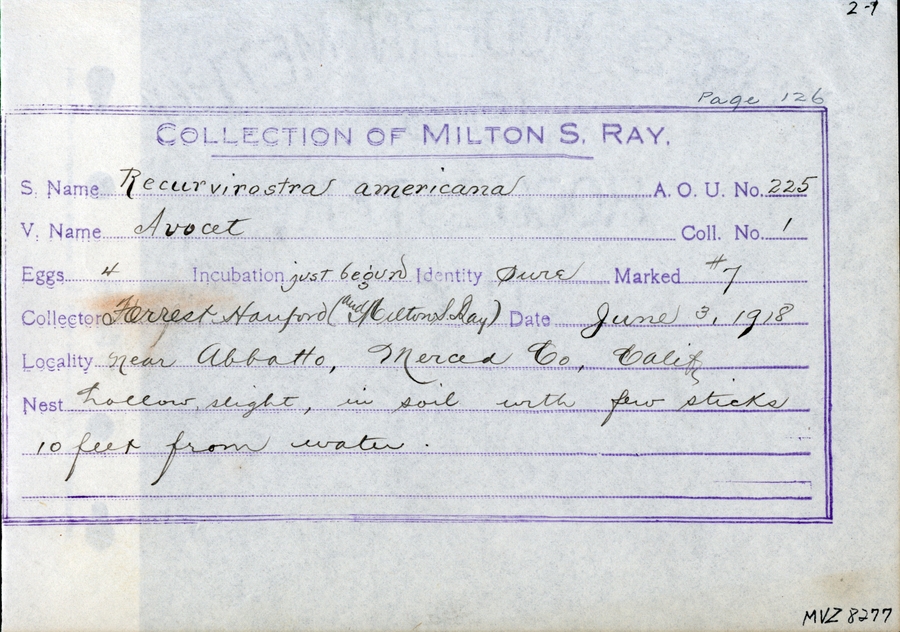 2-9
Page 126
COLLECTION OF MILTON S. RAY.
S. Name Recurvirostra americana A. O. U. No. 225
V. Name Avocet Coll. No. 1
Eggs 4 Incubation just begun Identity sure Marked #7
Collector Forrest Hanford (and Milton S. Ray) Date June 3, 1918
Locality near Abbatto, Merced Co, Calif
Nest hollow, slight, in soil with few sticks
10 feet from water.
MVZ 8277